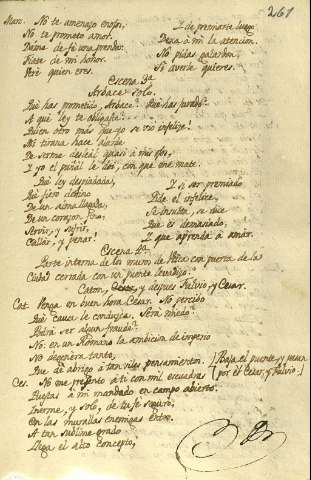 261
Marc. No te amenazo enojo,
No te prometo amor.
Dame de fé una prenda:
Fiate de mi honor.
Veré quien eres.
Y de premiarte luego
Dexa á mi la atencion.
No pidas galardon,
Si averle quieres.
Escena 3ª
Arbace solo.
Qué has prometido, Arbace? Qué has jurado?
A qué ley te obligaste?
Quien otro más que yo se vió infelize?
Mi tirana hace alarde
De serme desleal quasi á mis ojos,
Y yo el puñal le doi, con que me mate.
Qué ley despiadada,
Qué fiero destino
De un alma llagada,
De un corazon fino,
Servir, y sufrir,
Callar, y penar!
Y si ser premiado
Pide el infelice,
Se insulta, se dice
Que es demasiado,
Y que aprenda á amar.
Escena 4ª
Parte interna de los muros de Utica con puerta de las
Ciudad cerrada con un puente levadizo.
Caton, y despues Fulvio, y Cesar.
Cat. Venga en buen hora Cesar. No percibo
Qué causa le conduzca. Será miedo?
Podrá ser algun fraude?
No: en un Romano la ambicion de imperio
No degenera tanto,
Que dé abrigo á tan viles pensamientos. (Baja el puente, y pasan
Ces. No me presento á ti con mil escuadras (por él Cesar, y Fulvio.)
Puestas á mi mandado en campo abierto.
Inerme, y solo, de tu fé seguro,
En las murallas enemigas entro.
A tan sublime grado
Llega el alto concepto,